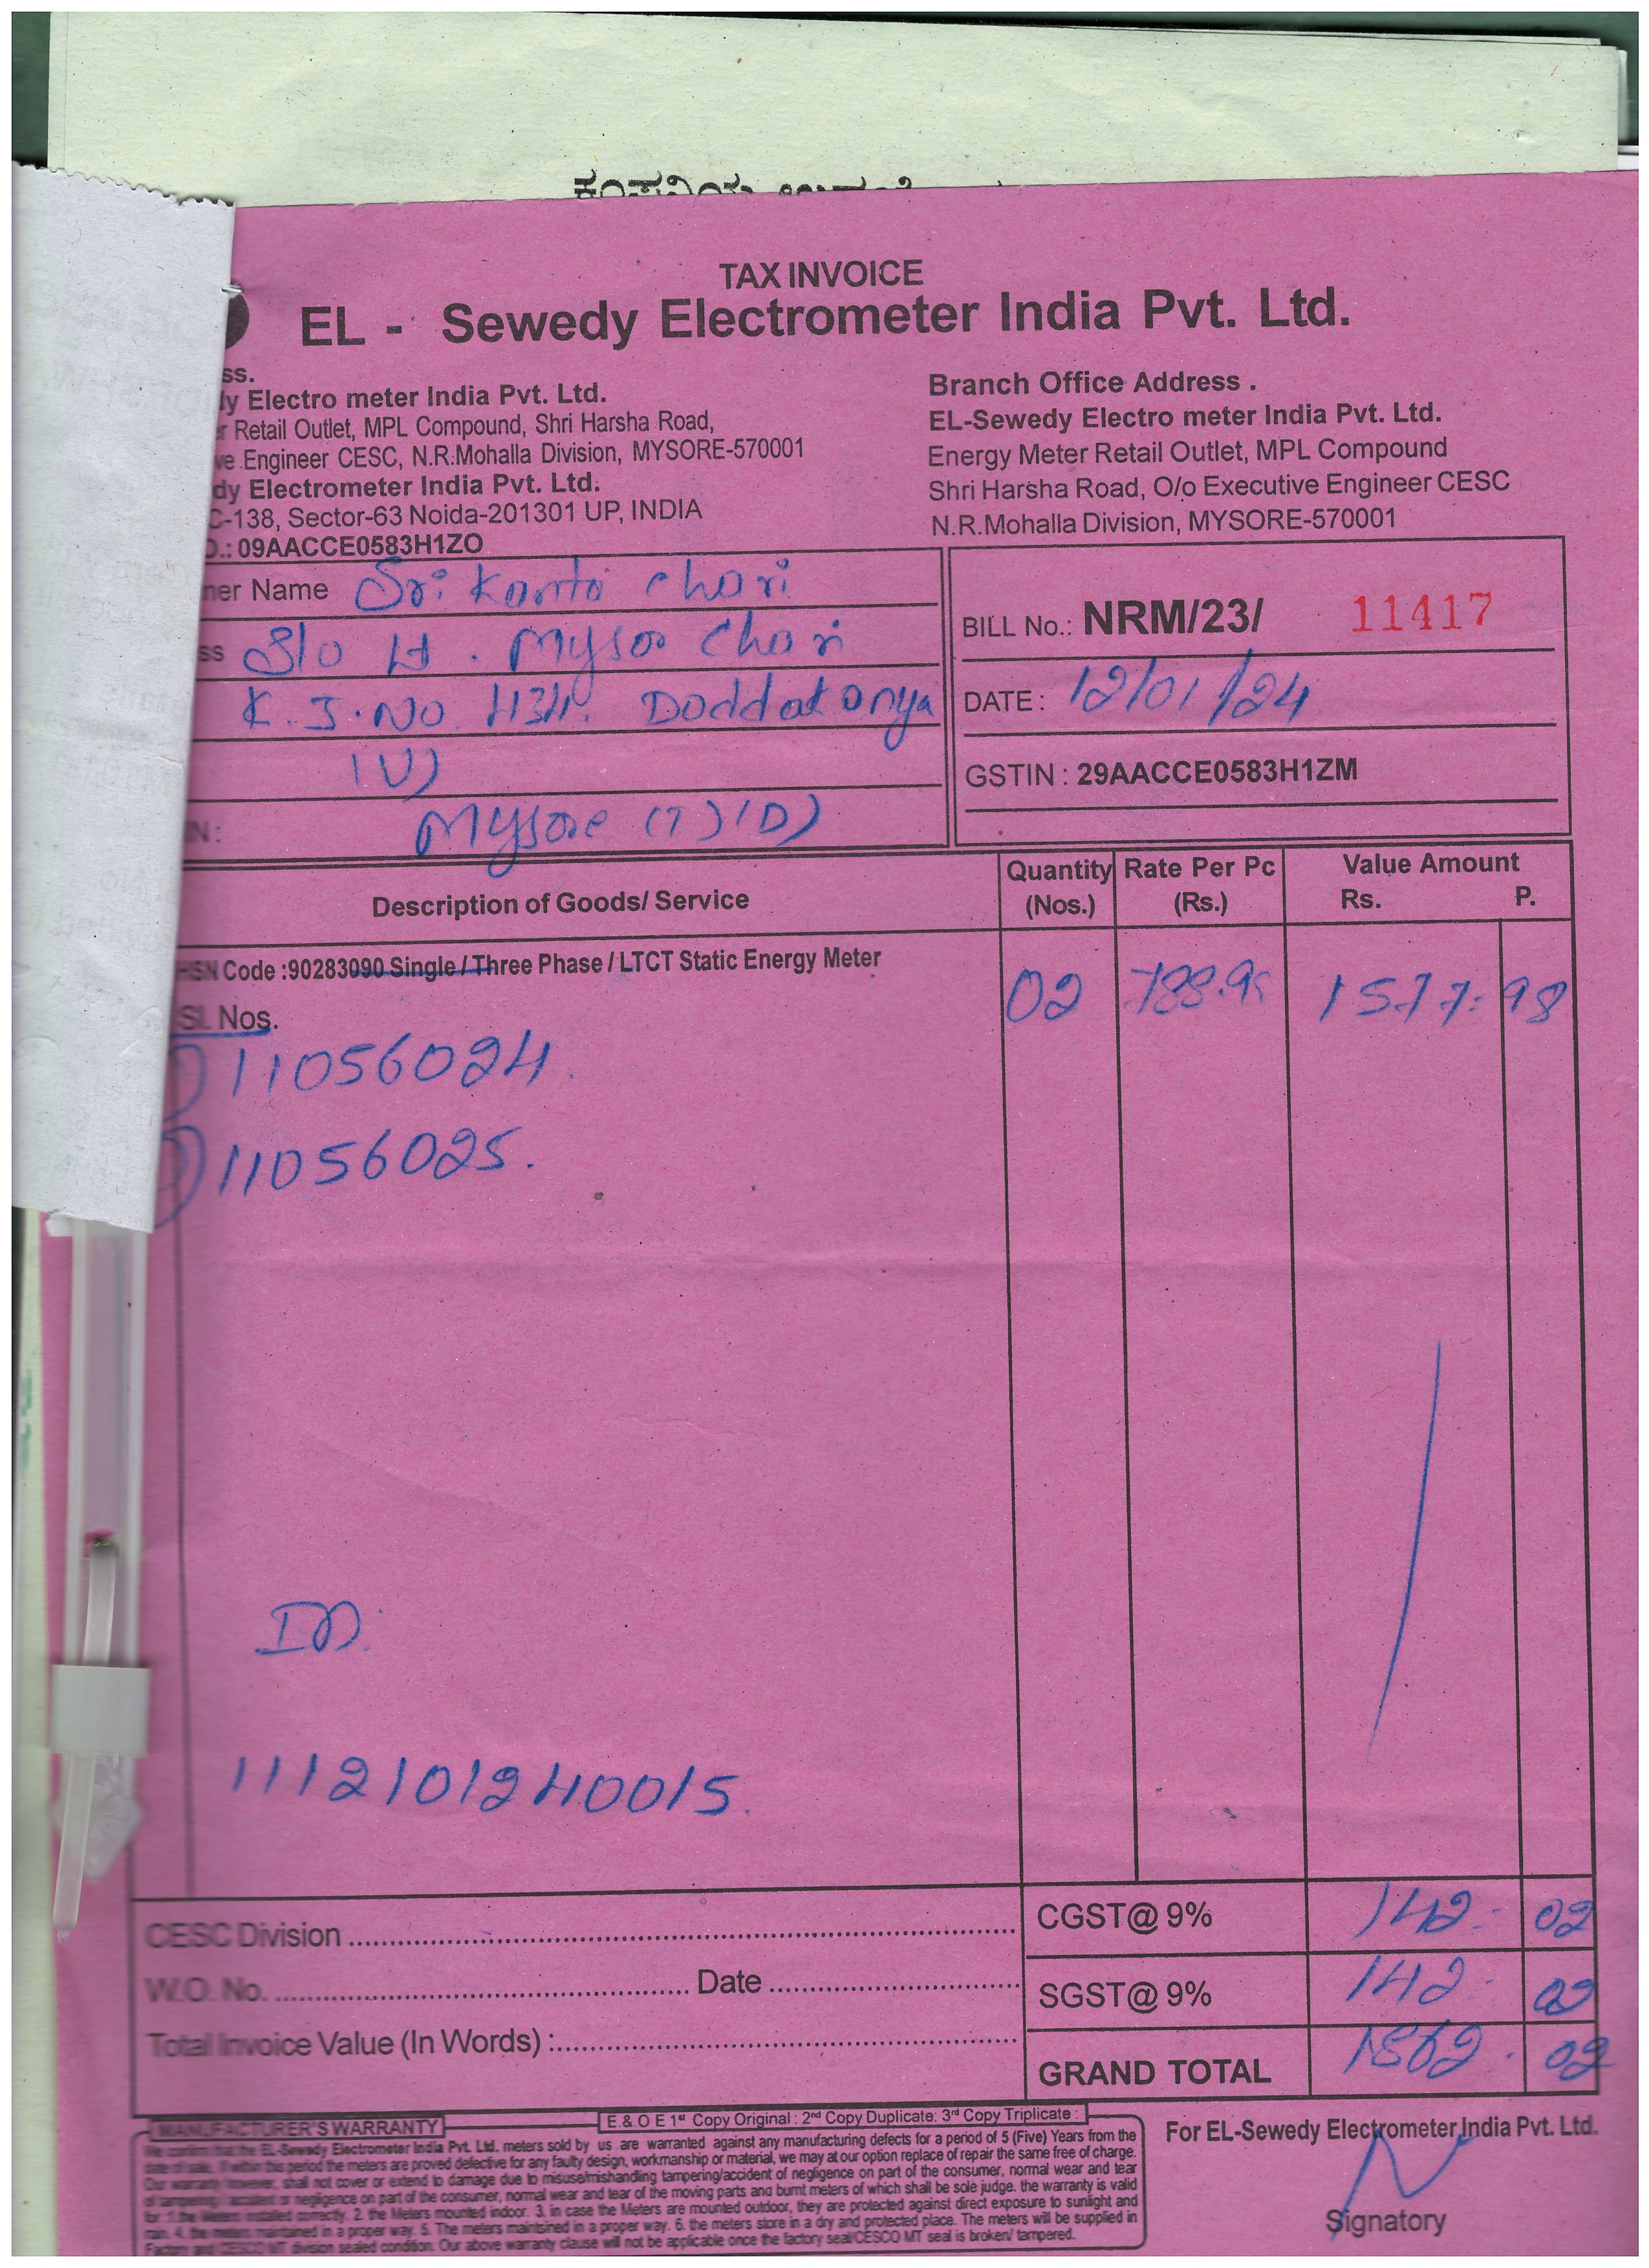 TAX INVOICE
EL - Sewedy Electrometer India Pvt. Ltd.
ss.
ly Electro meter India Pvt. Ltd.
r Retail Outlet, MPL Compound, Shri Harsha Road,
ve Engineer CESC, N.R.Mohalla Division, MYSORE-570001
dy Electrometer India Pvt. Ltd.
C-138, Sector-63 Noida-201301 UP, INDIA
O.: 09AACCE0583H1ZO
Branch Office Address .
EL-Sewedy Electro meter India Pvt. Ltd.
Energy Meter Retail Outlet, MPL Compound
Shri Harsha Road, O/o Executive Engineer CESC
N.R.Mohalla Division, MYSORE-570001
ner Name Sri Kanta Chari
ss S/o H. Mysor Chari
K.J.No 434. Doddakanya
(V)
IN : Mysore (T) (D)
BILL No.: NRM/23/ 11417
DATE : 12/01/24
GSTIN : 29AACCE0583H1ZM
Description of Goods/ Service
Quantity (Nos.)
Rate Per Pc (Rs.)
Value Amount
Rs. P.
HSN Code :90283090 Single / Three Phase / LTCT Static Energy Meter
02 788.99 1577. 98
Sl. Nos.
11056024.
11056025.
ID:
1112101240015.
CESC Division
W.O. No. Date
Total Invoice Value (In Words) :
CGST@ 9% 142. 02
SGST@ 9% 142. 02
GRAND TOTAL 1862. 02
E & O E 1st Copy Original : 2nd Copy Duplicate: 3rd Copy Triplicate :
MANUFACTURER'S WARRANTY
We confirm that the EL-Sewedy Electrometer India Pvt. Ltd. meters sold by us are warranted against any manufacturing defects for a period of 5 (Five) Years from the
date of sale. If within this period the meters are proved defective for any faulty design, workmanship or material, we may at our option replace of repair the same free of charge.
Our warranty however, shall not cover or extend to damage due to misuse/mishandling tampering/accident of negligence on part of the consumer, normal wear and tear
of tampering / accident or negligence on part of the consumer, normal wear and tear of the moving parts and burnt meters of which shall be sole judge. the warranty is valid
for :1.the Meters installed correctly. 2. the Meters mounted indoor. 3. in case the Meters are mounted outdoor, they are protected against direct exposure to sunlight and
rain. 4. the meters maintained in a proper way. 5. The meters maintsined in a proper way. 6. the meters store in a dry and protected place. The meters will be supplied in
Factory and CESCO MT division sealed condition. Our above warranty clause will not be applicable once the factory seal/CESCO MT seal is broken/ tampered.
For EL-Sewedy Electrometer India Pvt. Ltd.
Signatory